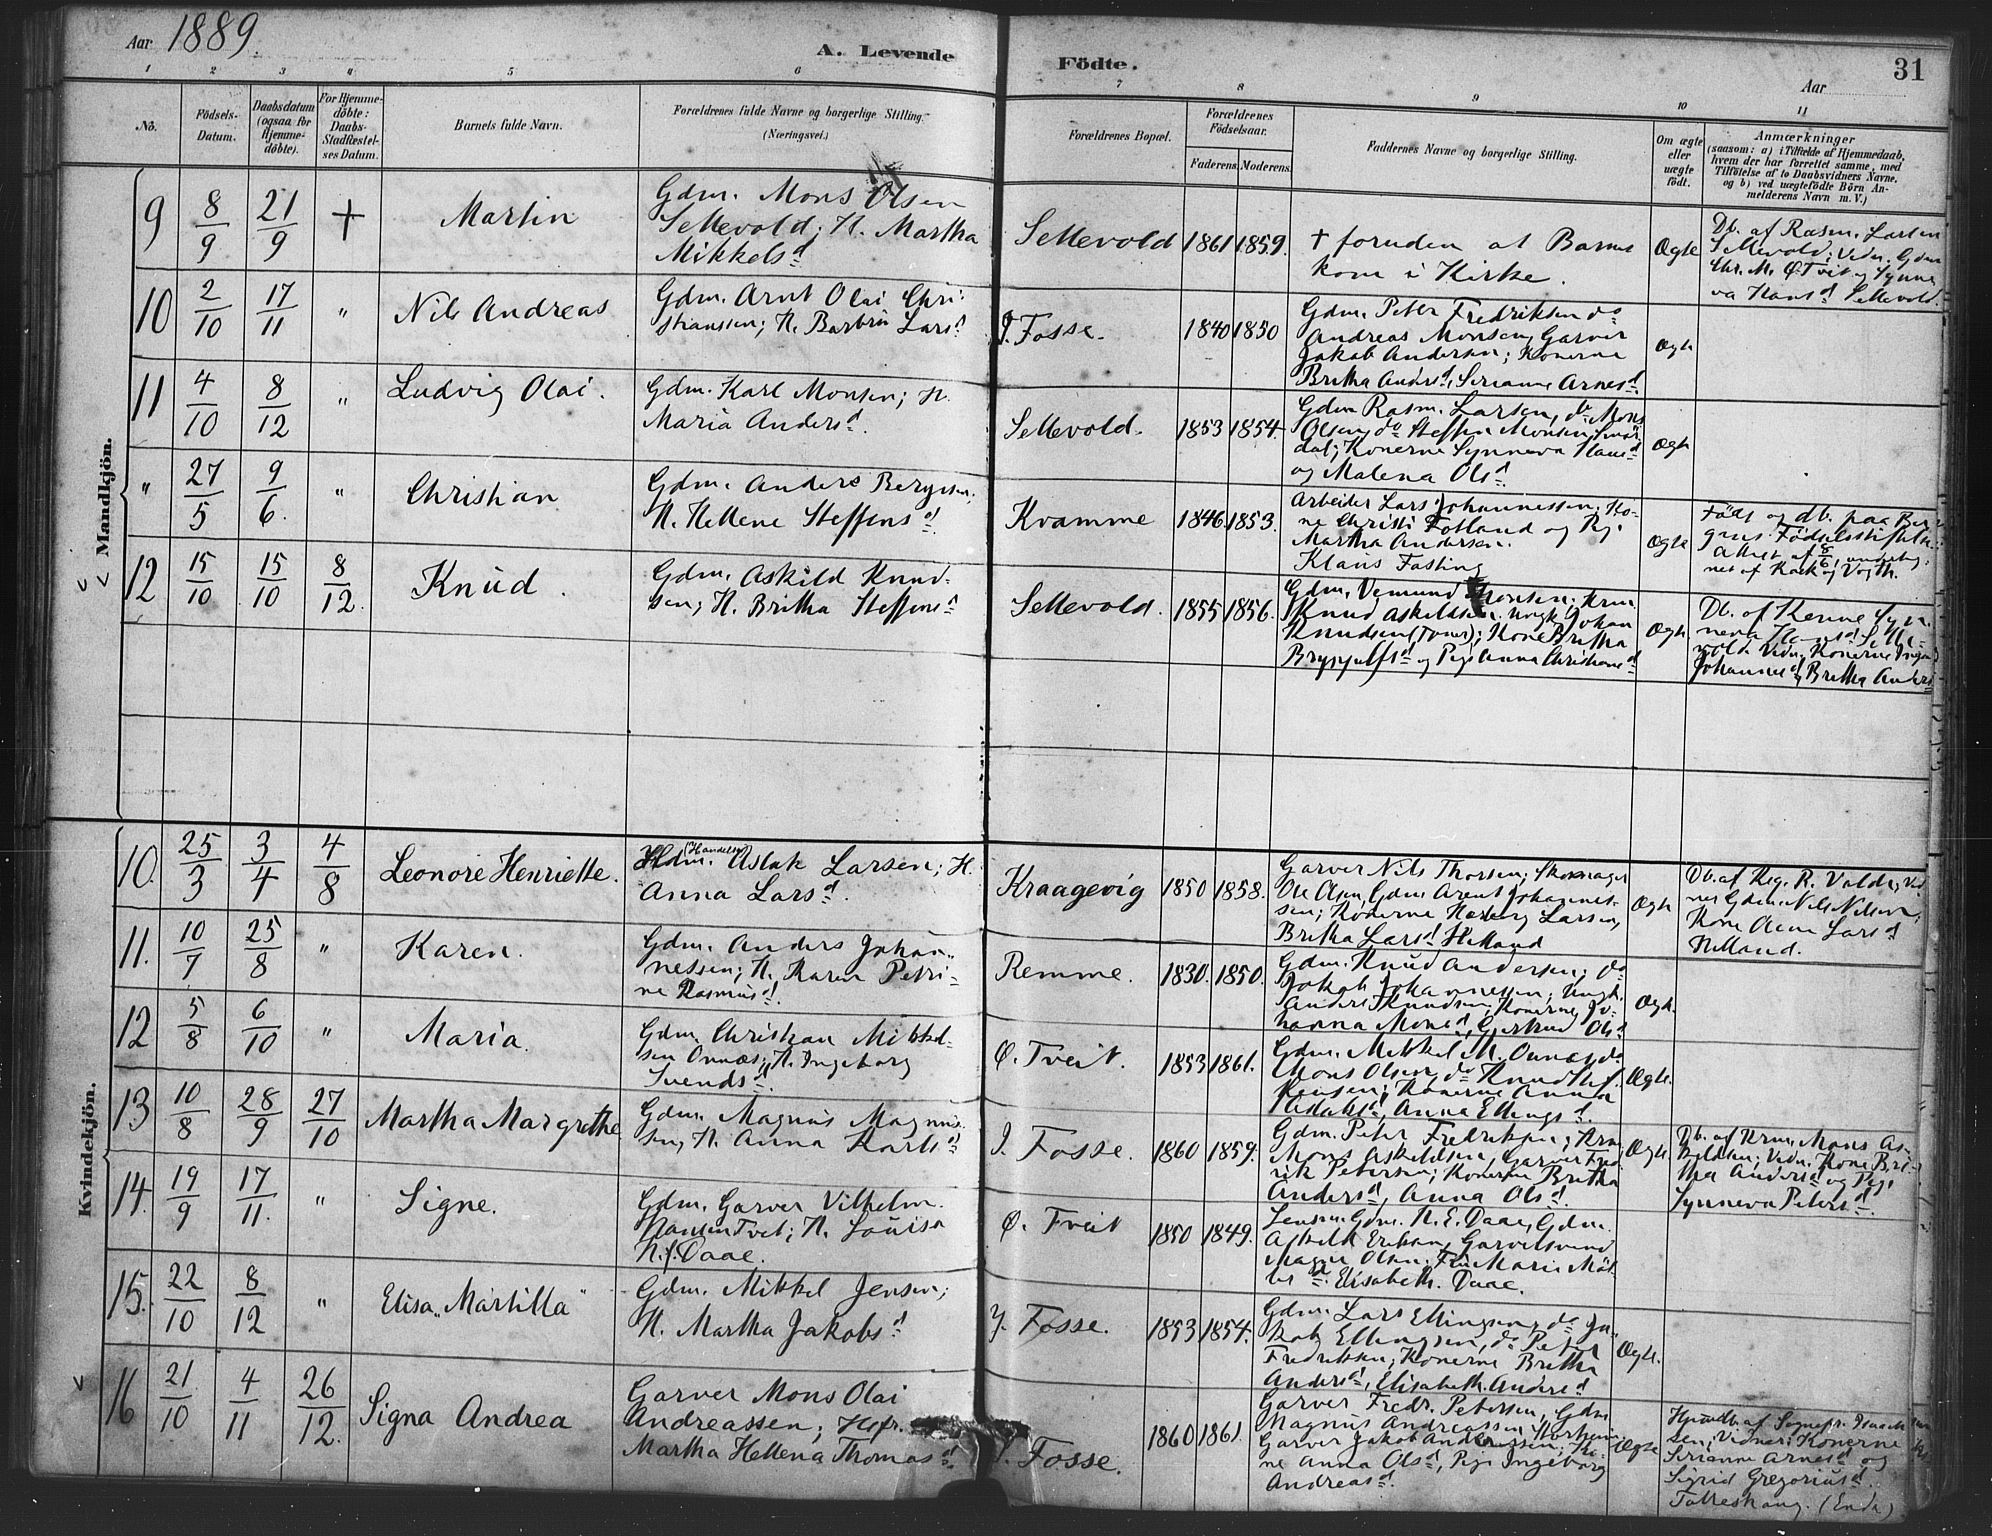 Aar 1889. A. Levende Födte. Aar 31
1 2 3 4 5 6 7 8 9 10 11
No.
Födsels-
Datum.
Daabsdatum
(ogsaa for
Hjemme-
döbte).
For Hjemme-
döbte:
Daabs-
Stadfæstel-
ses Datum.
Barnets fulde Navn.
Forældrenes fulde Navne og borgerlige Stilling.
(Næringsvei.)
Forældrenes Bopæl.
Forældrenes
Födselsaar.
Faderens. Moderens.
Faddernes Navne og borgerlige Stilling.
Om ægte
eller
uægte
födt.
Anmærkninger
(saasom: a) i Tilfælde af Hjemmedaab,
hvem der har forrettet samme, med
Tilföielse af to Daabsvidners Navne,
og b) ved uægtefödte Börn An-
melderens Navn m. V.)
Mandkjön.
9 8/9 21/9 † Martin
Gdm. Mons Olsen
Sellevold; H. Martha
Mikkelsd
Sellevold 1861 1859.
† foruden at Barnet
kom i Kirke.
Ægte
Db. af Rasm. Larsen
Sellevold; Vidn. Gdm
Chr. M. Ø. Tveit og Synne
va Hansd Sellevold.
10 2/10 17/11 " Nils Andreas
Gdm. Arnt Olai Chri-
stianssen; H. Barbru Larsd
I. Fosse. 1840 1850
Gdm. Peter Fredriksen do
Andreas Monsen, Garver
Jakob Andersen; Konerne
Britha Andersd, Serianne Arnesd.
Ægte
11 4/10 8/12 " Ludvig Olai.
Gdm. Karl Monsen; H.
Maria Andersd.
Sellevold. 1853 1854.
Gdm Rasm. Larsen, do Mons
Olsen, do Steffen Monsen
dal; Konerne Synneva Hansd
og Malena Olsd.
Ægte
" 27/5 9/6. " Christian
Gdm. Anders Bergesen
H. Hellene Steffensd
Kvamme 1846. 1853.
Arbeider Lars Johannessen; Ko-
ne Christi Fotland og Pig.
Martha Andersen.
Klaus Fasting
Ægte
Födt og db. paa Ber
gens Födselsstiftelse
attest af 8/6, underteg-
net af Kock og Vogth.
12 15/10 15/10 8/12. Knud.
Gdm. Askild Knud-
sen; H. Britha Steffensd
Sellevold. 1855 1856.
Gdm. Vemund Monsen. Krm
Knud Askildsen. Ungk. Johan
Knudsen (Toner); Kone Britha
Brynjulfsd og Pige Anna Christianed
Ægte.
Db. af Kerne Syn-
neva Hansd Selle-
vold. Vidn. Konerne Inge
Johannesd, Britha Anders
Kvindekjön.
10. 25/3 3/4 4/8 Leonore Henriette.
(Handelsm)
Hdm. Aslak Larsen; H.
Anna Larsd.
Kraagevig 1850 1858.
Garver Nils Thorsen; Skomager
Ole Olsen, Gdm Arent Johannes-
sen; Konerne Herborg Larsen,
Britha Larsd Helland
Ægte
Db. af Reg. R. Valde; Vid
ner Gdm. Nils Nilsen,
Kone Anne Larsd
Helland.
11. 10/7 25/8 " Karen.
Gdm. Anders Johan-
nessen; H. Karen Petri-
ne Rasmusd.
Remme. 1830. 1850.
Gdm. Knud Andersen; do
Jakob Johannessen; Ungk.
Anders Knudsen; Konerne Jo-
hanna Monsd, Gjertrud Olsd
Ægte.
12 5/8 6/10 " Maria.
Gdm. Christian Mikkel-
sen Onnæs; H. Ingeborg
Svendsd.
Ø. Tveit. 1853 1861.
Gdm. Mikkel M. Onnæs, do
Mons Olsen, do Knud Stef
fensen; Konerne Anna
Adabsd, Anna Ellingsd.
Ægte.
13 10/8 28/9 27/10 Martha Margrethe
Gdm. Magnus Magnus-
sen, H. Anna Karlsd
I. Fosse. 1860 1859.
Gdm. Peter Fredriksen; Krm.
Mons Askildsen, Garver Fred-
rik Petersen; Konerne Britha
Andersd, Anna Olsd.
Ægte.
Db. af Krm. Mons As-
kildsen; Vidn. Kone Bri-
tha Andersd og Pige
Synneva Petersd.
14. 19/9 17/11. " Signe.
Gdm. Garver Vilhelm
Hansen Tvet; H. Louisa
N. f. Daae.
Ø. Tveit 1850 1849.
Lensm. Gdm. N. E. Daae, Gdm.
Askild Eriksen, Garverisvend
Magne Olsen. Frk Marie Möl
ler. Elisabeth Daae.
15. 22/10 8/12 " Elisa "Martilla"
Gdm. Mikkel Jensen;
H. Martha Jakobsd.
Y. Fosse. 1853 1854.
Gdm. Lars Ellingsen, do Ja-
kob Ellingsen, do Peter
Fredriksen; Konerne Britha
Andersd, Elisabeth Andersd
Ægte.
16 21/10 4/11 26/12. Signa Andrea
Garver Mons Olai
Andreassen; Hfr.
Martha Hellena Thomasd.
Y. Fosse. 1860 1861.
Garver Fredr. Petersen, Gdm
Magnus Andreassen
Garver Jakob Andreassen; Ko-
ne Anna Olsd, Pige Ingeborg
Andreasd.
Ægte
Hjmdb. af Sognepr. Isaach
sen; Vidner: Konerne
Serianne Arnesd og
Sigrid Gregoriusd.
(Enke)